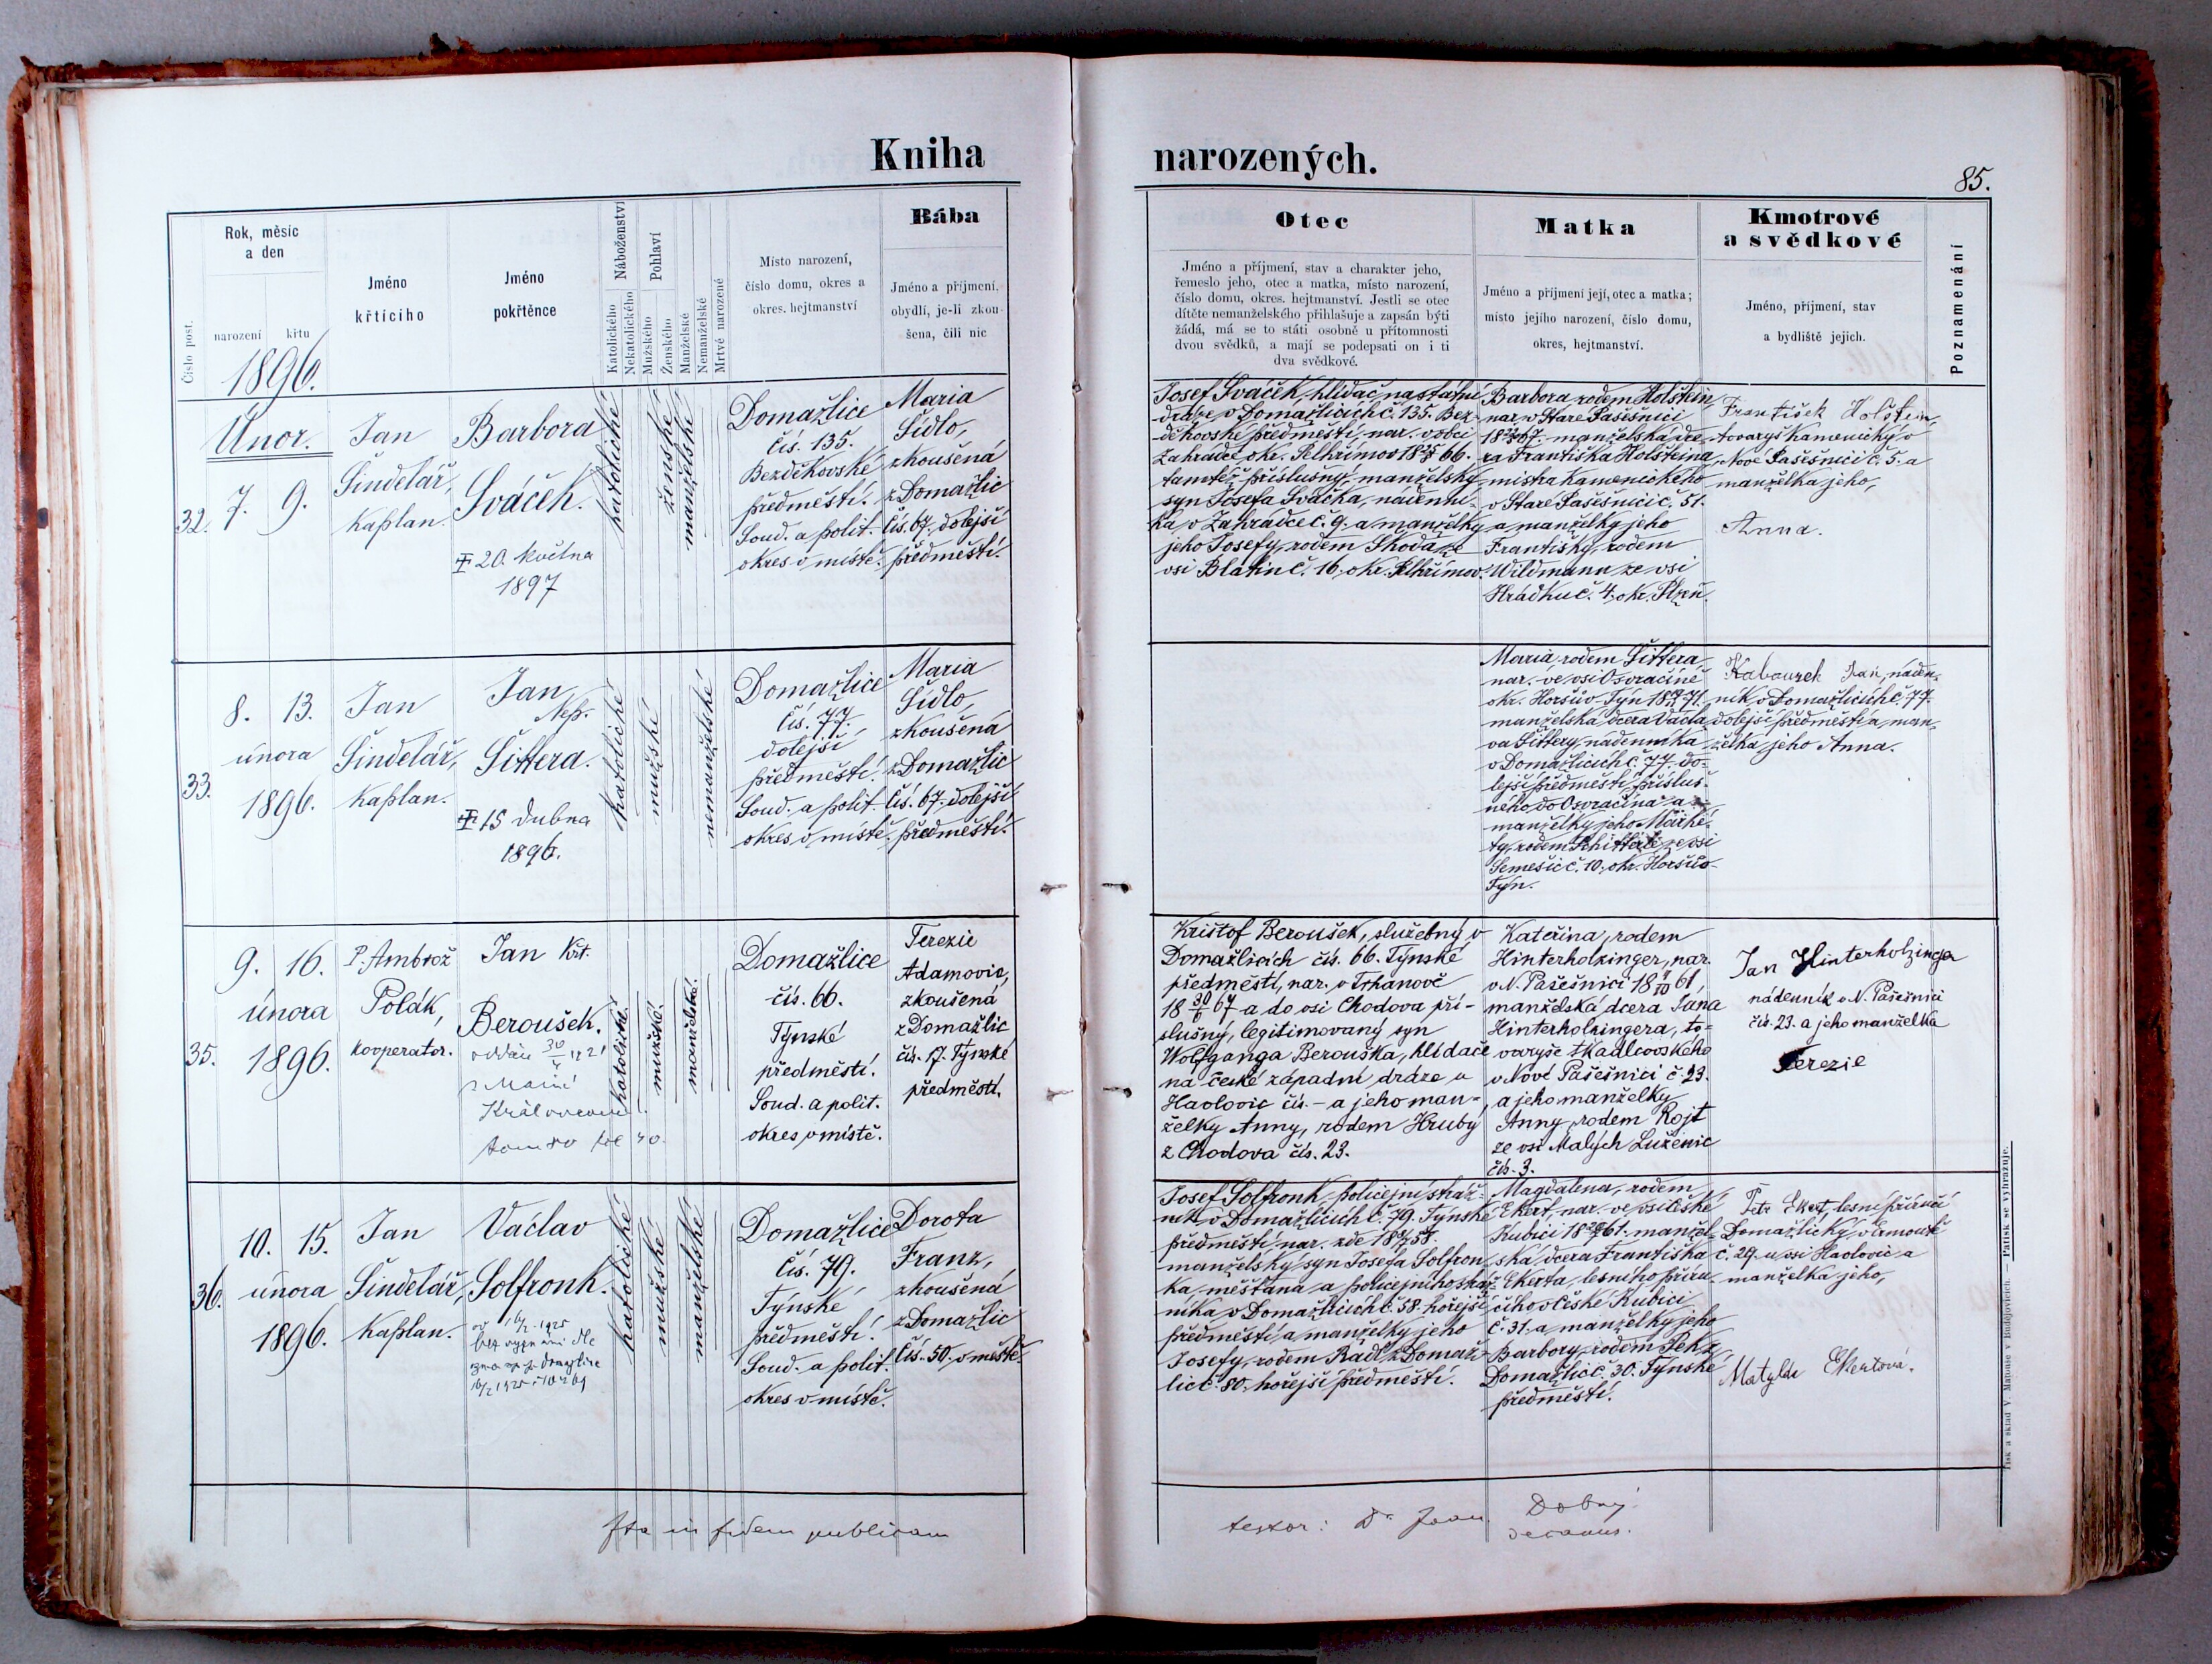 Kniha
narozených.
85.
Číslo post.
Rok, měsíc
a den
narození
křtu
1896.
Jméno
křtícího
Jméno
pokřtěnce
Náboženství
Katolického
Nekatolického
Pohlaví
Mužského
Ženského
Manželské
Nemanželské
Mrtvě narozené
Místo narození,
číslo domu, okres a
okres. hejtmanství
Bába
Jméno a příjmení,
obydlí, je-li zkou-
šena, čili nic
Otec
Jméno a příjmení, stav a charakter jeho,
řemeslo jeho, otec a matka, místo narození,
číslo domu, okres. hejtmanství. Jestli se otec
dítěte nemanželského přihlašuje a zapsán býti
žádá, má se to státi osobně u přítomnosti
dvou svědků, a mají se podepsati on i ti
dva svědkové.
Matka
Jméno a příjmení její, otec a matka;
místo jejího narození, číslo domu,
okres, hejtmanství.
Kmotrové
a svědkové
Jméno, příjmení, stav
a bydliště jejich.
Poznamenání
Únor.
32.
7. 9.
Jan
Šindelář,
kaplan.
Barbora
Sváček.
20. května
1897
katolické
ženské
manželské
Domažlice
čís. 135.
Bezděkovské
předměstí.
Soud. a polit.
okres v místě.
Maria
Sídlo,
zkoušená
z Domažlic
čís. 67. dolejší
předměstí.
Josef Sváček, hlídač na státní
dráze v Domažlicích č. 135. Bez-
děkovské předměstí, nar. v obci
Zahrádce okr. Pelhřimov 18 66.
tamtéž příslušný, manželský
syn Josefa Sváčka, nádenní-
ka v Zahrádce č. 9. a manželky
jeho Josefy, rodem Škoda ze
vsi Blatin č. 16. okr. Pelhřimov.
Barbora rodem Holštein,
nar. v Staré Pašešnici
18 67. manželská dce-
ra Františka Holšteina,
mistra kamenického
v Staré Pašešnici č. 51.
a manželky jeho
Františky, rodem
Wildmann ze vsi
Hrádku č. 4. okr. Plzeň.
František Holštein,
tovaryš kamenický v
Nové Pašešnici č. 5. a
manželka jeho,
Anna.
33.
8. 13.
února
1896.
Jan
Šindelář,
kaplan.
Jan
Nep.
Šittera.
15 dubna
1896.
katolické
mužské
nemanželské
Domažlice
čís. 77.
dolejší
předměstí.
Soud. a polit.
okres v místě.
Maria
Sídlo,
zkoušená
z Domažlic
čís. 67. dolejší
předměstí.
Maria, rodem Šittera,
nar. ve vsi Osvračíně
okr. Horšův-Týn 18 71.
manželská dcera Václa-
va Šittery, nádenníka
v Domažlicích č. 77. do-
lejší předměstí, přísluš-
ného do Osvračína a
manželky jeho Markê-
ty, rodem ze vsi
Semešic č. 10. okr. Horšův-
Týn.
Kabourek Jan, náden-
ník v Domažlicích č. 77.
dolejší předměstí a man-
želka jeho Anna.
35.
9. 16.
února
1896.
P. Ambrož
Polák,
kooperator.
Jan Kř.
Beroušek.
oddán 30 1921
s Marií
Královcovou
katolické.
mužské.
manželské.
Domažlice
čís. 66.
Týnské
předměstí.
Soud. a polit.
okres v místě.
Terezie
Adamovic,
zkoušená
z Domažlic
čís. 17. Týnské
předměstí.
Kristof Beroušek, služebný v
Domažlicích čís. 66. Týnské
předměstí, nar. v Trhanově
18 67 a do vsi Chodova pří-
slušný, legitimovaný syn
Wolfganga Berouška, hlídače
na české západní dráze u
Havlovic čís. – a jeho man-
želky Anny, rodem Hruby
z Chodova čís. 23.
Kateřina, rodem
Hinterholzinger, nar.
v N. Pašešnici 18 61,
manželská dcera Jana
Hinterholzingera, to-
varyše tkadlcovského
v Nové Pašešnici č. 23.
a jeho manželky
Anny rodem Rojt
ze vsi Malých Luženic
čís. 3.
Jan Hinterholzinger
nádenník v N. Pašešnici
čís. 23. a jeho manželka
Terezie
36.
10. 15.
února
1896.
Jan
Šindelář,
kaplan.
Václav
Solfronk.
katolické
mužské
manželské
Domažlice
čís. 79.
Týnské
předměstí.
Soud. a polit.
okres v místě.
Dorota
Franz,
zkoušená
z Domažlic
čís. 50. v městě.
Josef Solfronk, policejní stráž-
ník v Domažlicích č. 79. Týnské
předměstí, nar. zde 18 57.
manželský syn Josefa Solfron-
ka, měšťana a policejního stráž-
níka v Domažlicích č. 58. hořejší
předměstí a manželky jeho
Josefy, rodem Radl z Domaž-
lic č. 80. hořejší předměstí.
Magdalena, rodem
Ekert, nar. ve vsi České
Kubici 18 61. manžel-
ská dcera Františka
Ekerta, lesního příru-
čího v České Kubici
č. 31. a manželky jeho
Barbory, rodem Pek z
Domažlic č. 30. Týnské
předměstí.
Petr Ekert, lesní příručí
Domažlický
č. 29. u vsi Havlovic a
manželka jeho,
Matylda Ekertová.
Ita in fidem publicam
testor: Dr. Joan. Dobrý
decanus.
Tisk a sklad V. Matouše v Budějovicích. — Patisk se vyhrazuje.